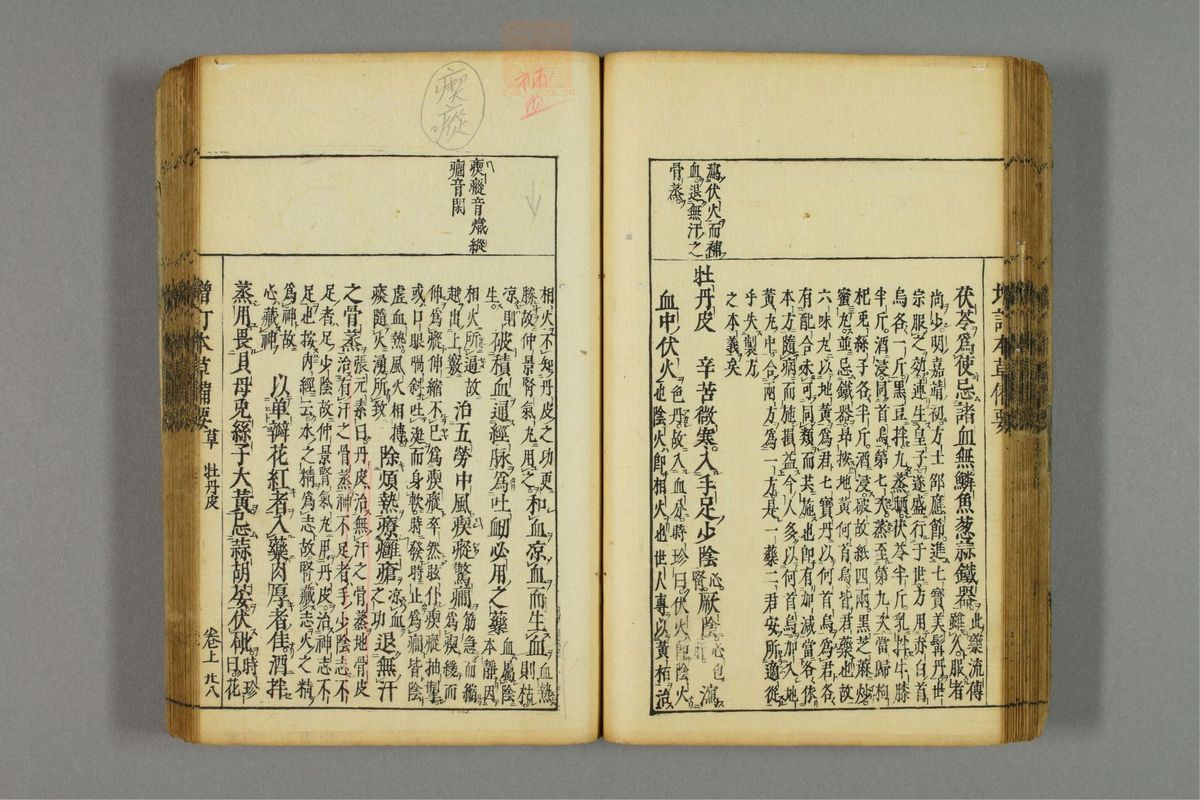 增訂本草備要
茯苓為使忌諸血無鱗魚葱蒜鐵器此藥流傳雖久服者
尚少明嘉靖初方士邵應節進七寶美髯丹世
宗服之効連生皇子遂盛行于世方用赤白首
烏各一斤黑豆拌九蒸晒茯苓半斤乳拌牛膝
半斤酒浸同首烏第七次蒸至第九次當歸枸
杞兎絲子各半斤酒浸破故紙四兩黑芝蔴炒
蜜丸並忌鐵器昂按地黄何首烏皆君藥也故
六味丸以地黄為君七寶丹以何首烏為君各
有配合未可同類而共施也即有加減當各依
本方隨病而施損益今人多以何首烏加入地
黄丸中合兩方為一方是一藥二君安所適從
乎失製方
之本義矣
瀉伏火而補
血退無汗之
骨蒸
牡丹皮 辛苦微寒入手足少陰心腎厥陰心包瀉
血中伏火色丹故入血分時珍曰伏火即陰火
也陰火即相火也世人專以黄柏治
補血
瘈瘲
瘈瘲音熾縱
癇音閑
相火不知丹皮之功更
勝故仲景腎氣丸用之和血凉血而生血血熱則枯
凉則生破積血通經脉為吐衂必用之藥血屬陰本靜因
相火所逼故
越出上竅治五勞中風瘈瘲驚癇筋急而縮為瘈後而
伸為瘲伸縮不已為瘈瘲卒然眩仆瘈瘲抽掣
或口眼喎斜吐涎而身軟時發時止為癇皆陰
虚血熱風火相搏
痰隨火湧所致除煩熱療癰瘡凉血之功退無汗
之骨蒸張元素曰丹皮治無汗之骨蒸地骨皮
治有汗之骨蒸神不足者手少陰志不
足者足少陰故仲景腎氣丸用丹皮治神志不
足也按内經云水之精為志故腎藏志火之精
為神故
心藏神以單瓣花紅者入藥肉厚者佳酒拌
蒸用畏貝母兎絲子大黄忌蒜胡荽伏砒時珍曰花
增訂本草備要 草 牡丹皮 卷上 廾八